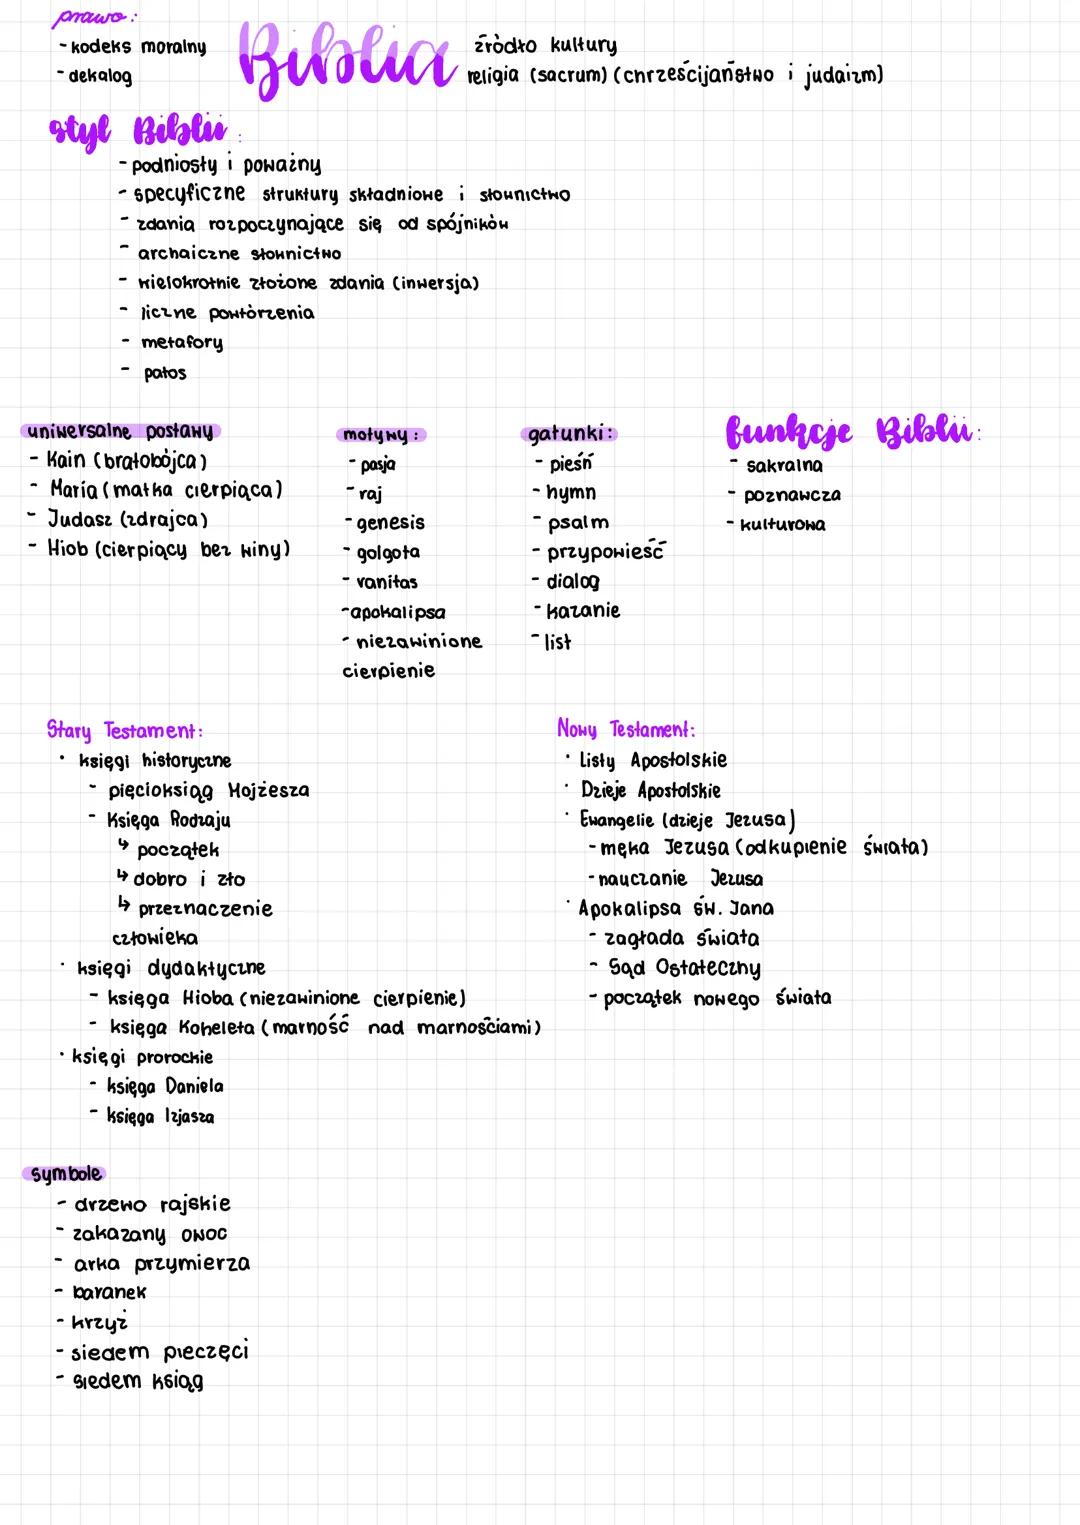 prawo:
- kodeks moralny
- dekalog
Biblia
źródło kultury
religia (sacrum) (chrześcijaństwo i judaizm)
styl Biblii:
- podniosły i poważny
- specyficzne struktury składniowe i słownictwo
- zdania rozpoczynające się od spójników
- archaiczne słownictwo
- wielokrotnie złożone zdania (inwersja)
- liczne powtórzenia
- metafory
- patos
uniwersalne postawy
- Kain (bratobójca)
- Maria (matka cierpiąca)
- Judasz (zdrajca)
- Hiob (cierpiący bez winy)
motywy:
- pasja
- raj
- genesis
- golgota
- vanitas
- apokalipsa
- niezawinione
cierpienie
gatunki:
- pieśń
- hymn
- psalm
- przypowieść
- dialog
- kazanie
- list
funkcje Biblii:
- sakralna
- poznawcza
- kulturowa
Stary Testament:
• księgi historyczne
- pięcioksiąg Mojżesza
- Księga Rodzaju
↳ początek
↳ dobro i zło
↳ przeznaczenie
człowieka
• księgi dydaktyczne
- księga Hioba (niezawinione cierpienie)
- księga Koheleta (marność nad marnościami)
• księgi prorockie
- księga Daniela
- księga Izjasza
Nowy Testament:
• Listy Apostolskie
• Dzieje Apostolskie
• Ewangelie (dzieje Jezusa)
- męka Jezusa (odkupienie świata)
- nauczanie Jezusa
• Apokalipsa św. Jana
- zagłada świata
- Sąd Ostateczny
- początek nowego świata
symbole
- drzewo rajskie
- zakazany owoc
- arka przymierza
- baranek
- krzyż
- siedem pieczęci
- siedem ksiąg